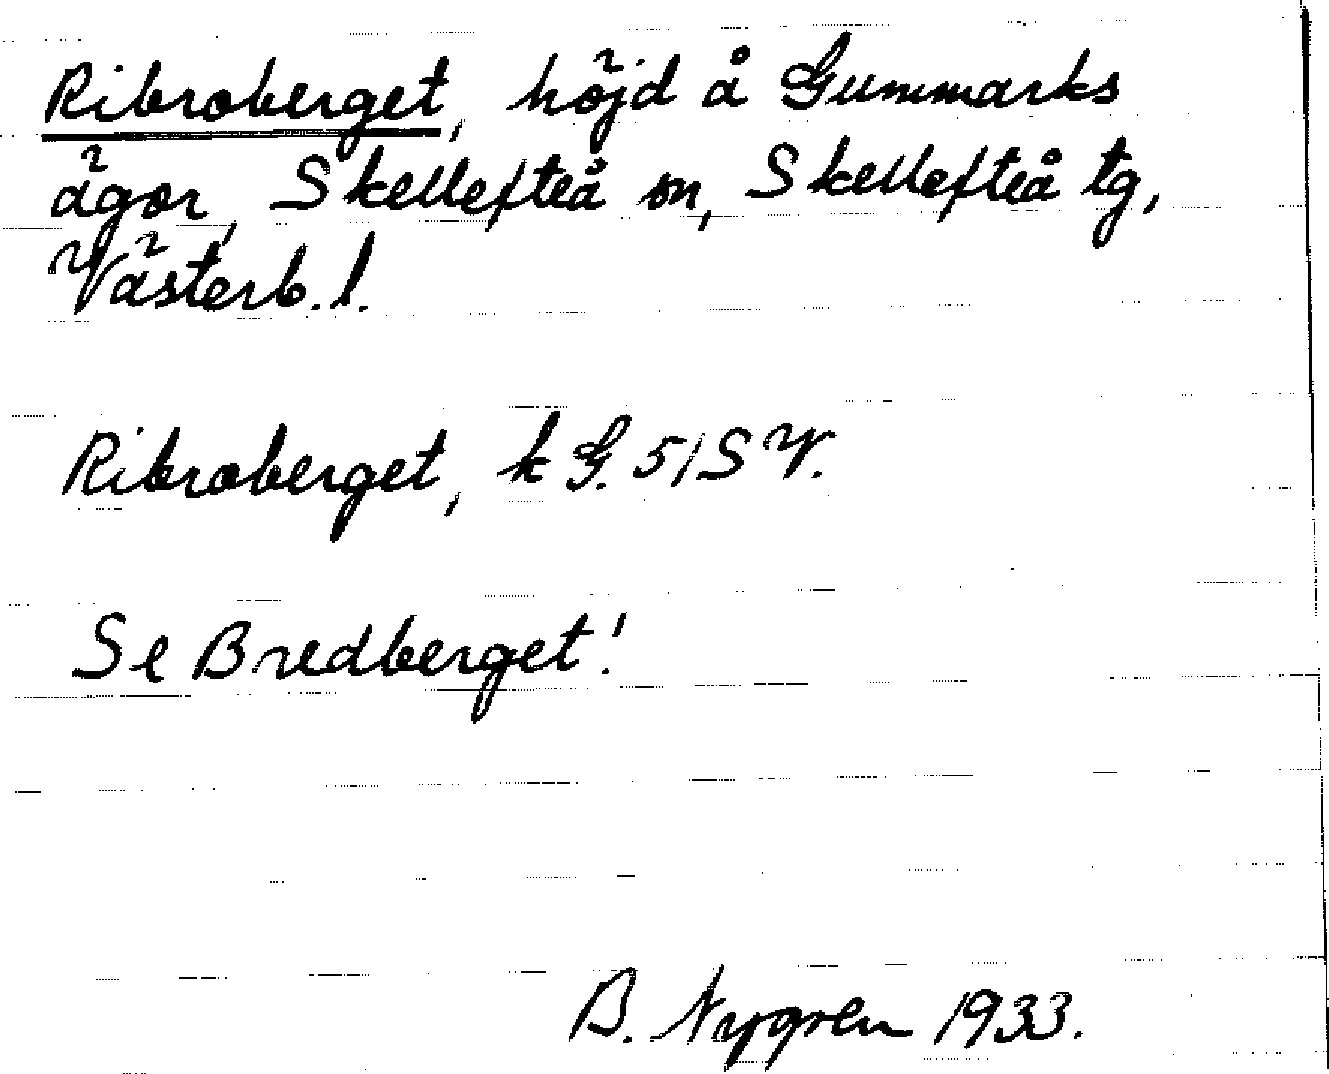 Ribroberget, höjd å Gummarks
ägor, Skellefteå sn, Skellefteå tg,
Västerb. l.
Ribroberget, k G. 51 S V.
Se Bredberget!
B. Nygren 1933.